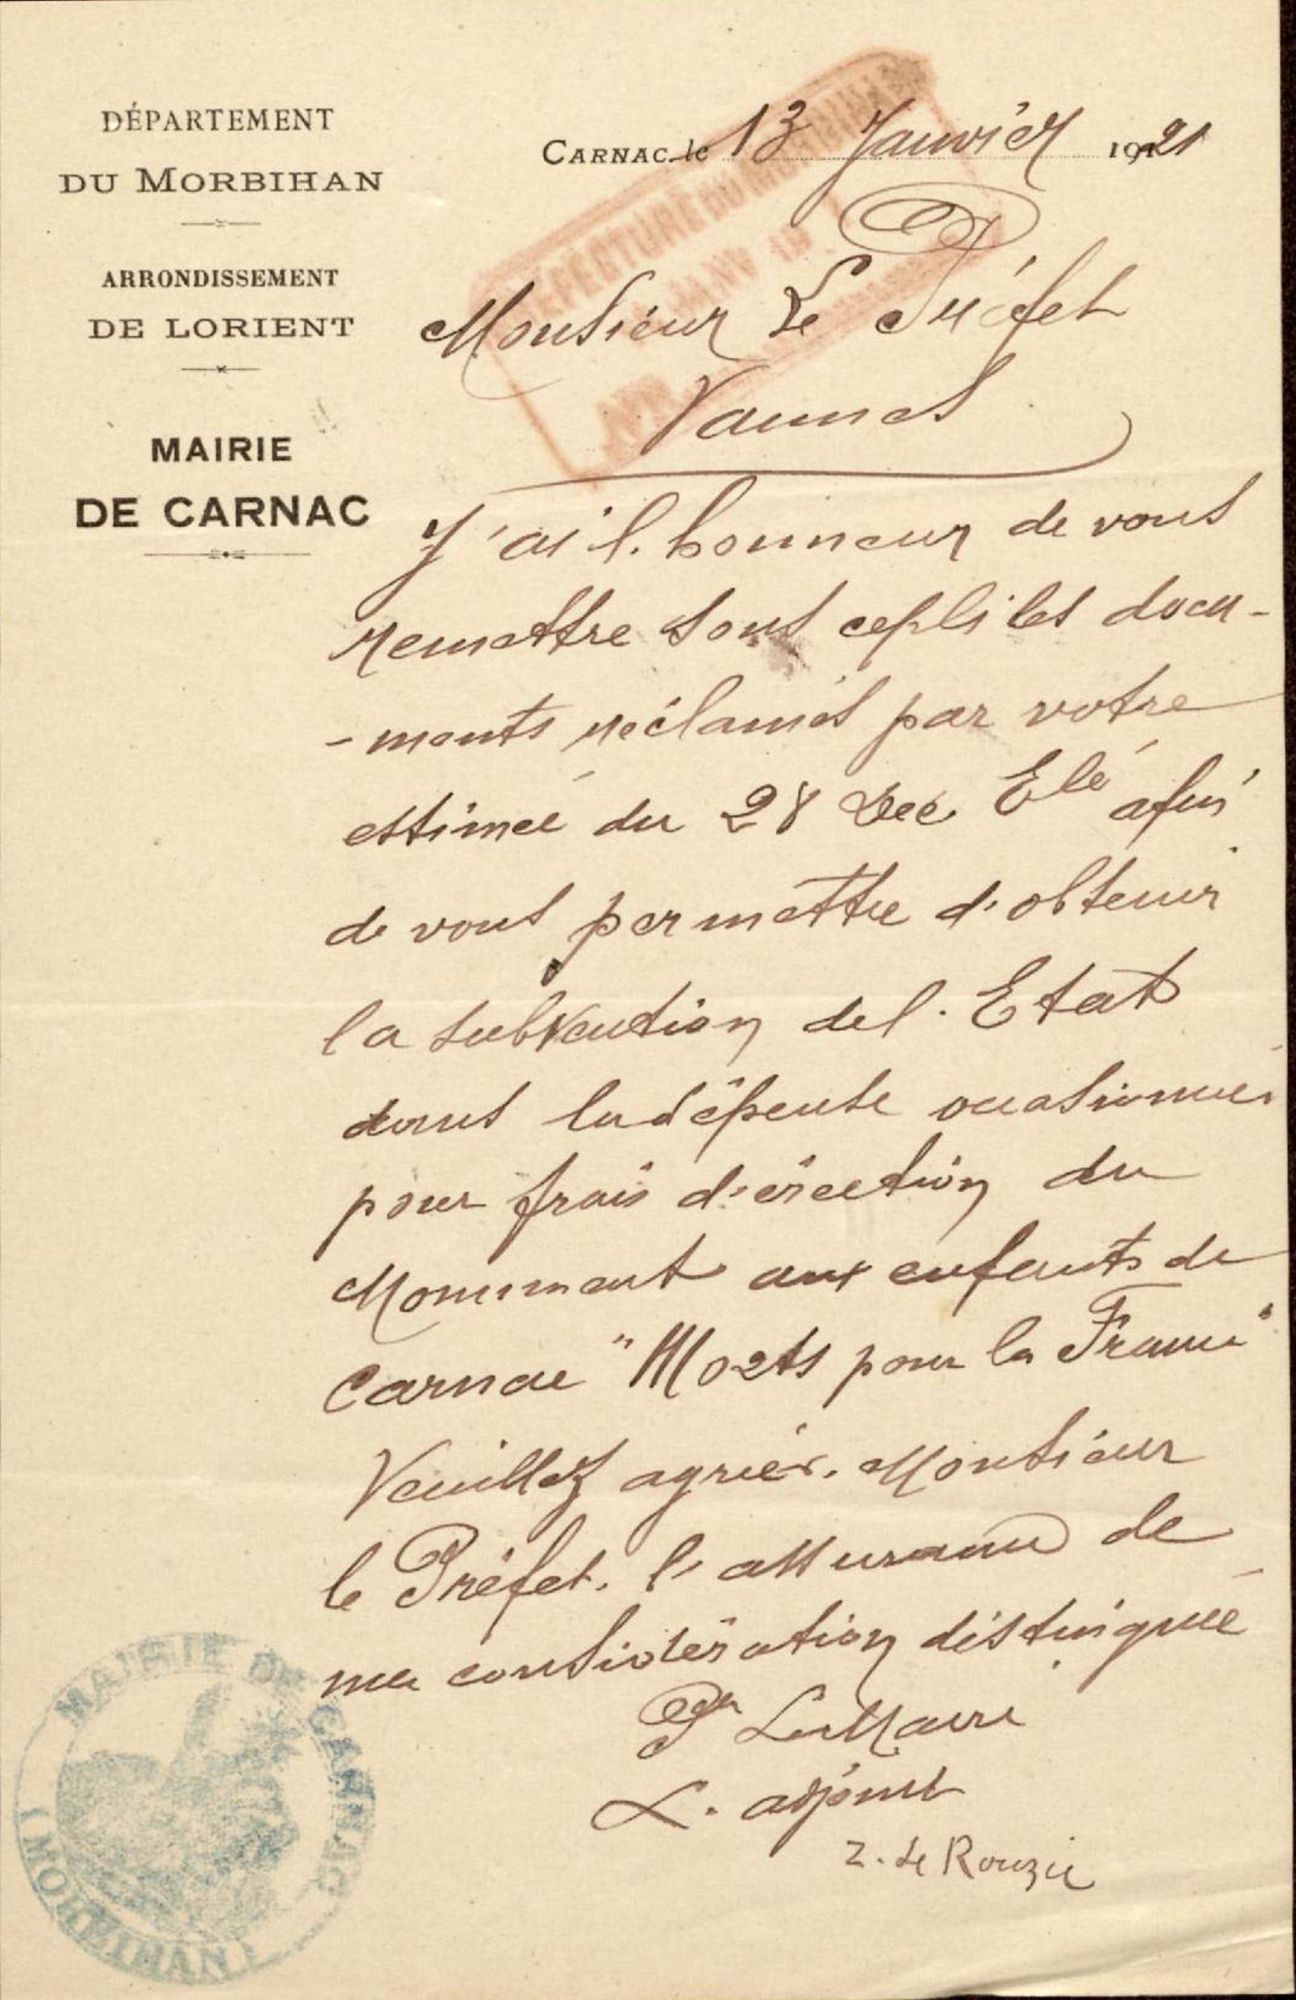 DÉPARTEMENT
DU MORBIHAN
ARRONDISSEMENT
DE LORIENT
MAIRIE
DE CARNAC
CARNAC, le 13 Janvier 1921
PRÉFECTURE DU MORBIHAN
JANV
Monsieur Le Préfet
Vannes
J'ai l'honneur de vous
remettre sous ce pli les docu-
-ments réclamés par votre
estimée du 28 Dec. Elé afin
de vous permettre d'obtenir
la subvention de l'Etat
dans la dépense occasionnée
pour frais d'érection du
Monument aux enfants de
Carnac "Morts pour la France"
Veuillez agréer, Monsieur
le Préfet, l'assurance de
ma considération distinguée
Pr Le Maire
L'adjoint
Z. Le Rouzic
MAIRIE DE CARNAC
(MORBIHAN)